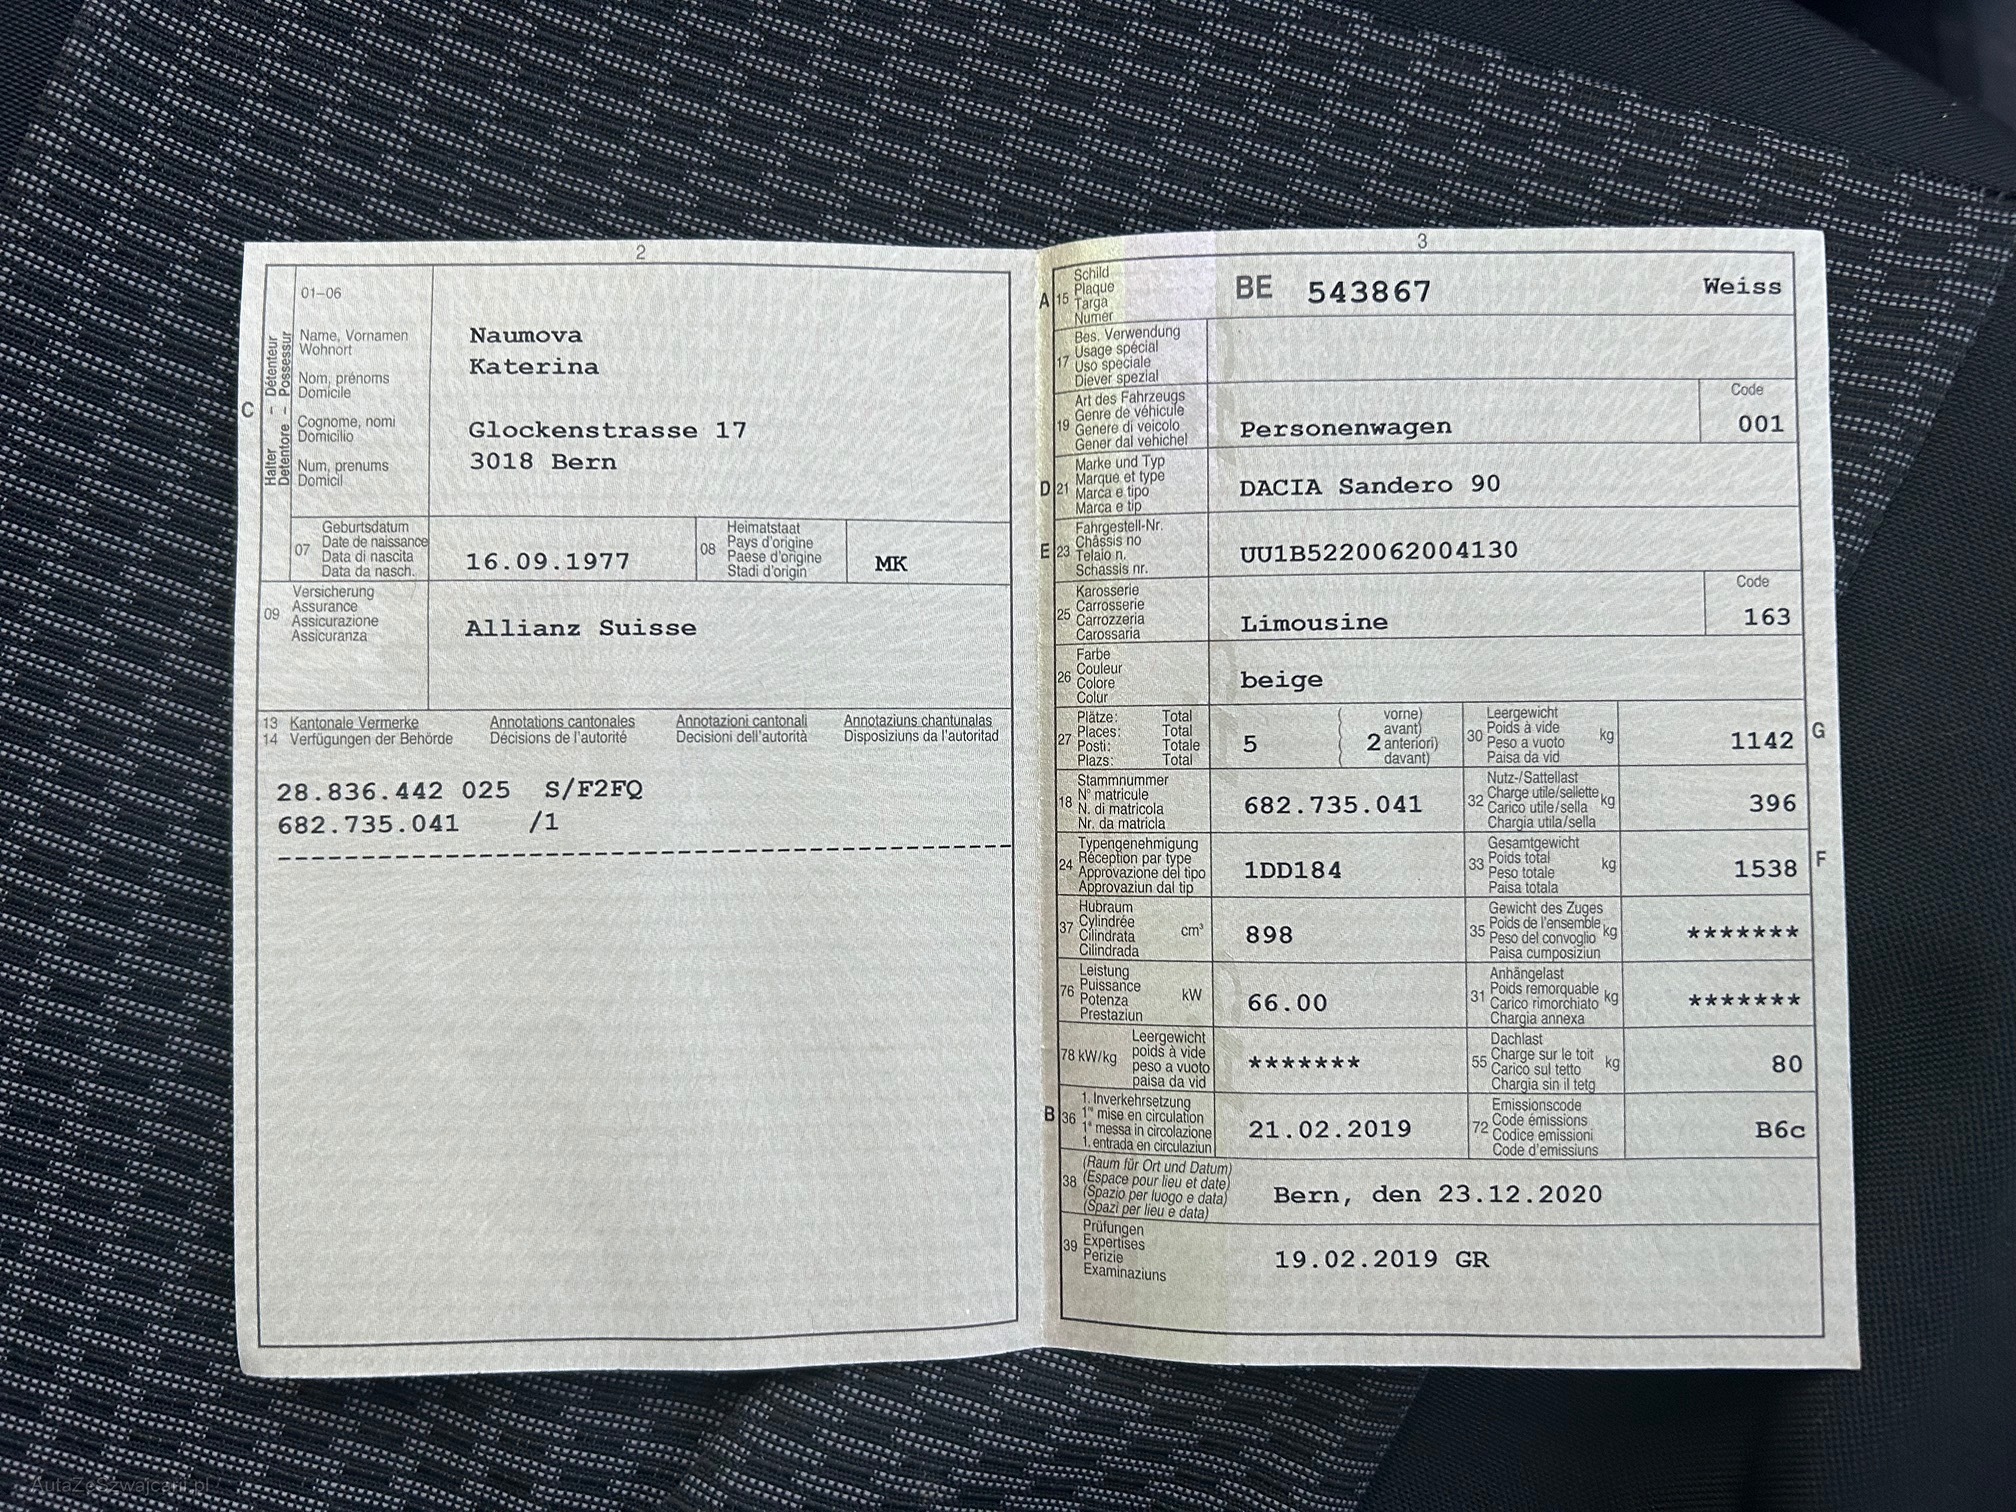 2
01–06
Name, Vornamen
Wohnort
Nom, prénoms
Domicile
Cognome, nomi
Domicilio
Num, prenums
Domicil
C
Halter – Détenteur
Detentore – Possessur
Naumova
Katerina
Glockenstrasse 17
3018 Bern
07
Geburtsdatum
Date de naissance
Data di nascita
Data da nasch.
16.09.1977
08
Heimatstaat
Pays d'origine
Paese d'origine
Stadi d'origin
MK
09
Versicherung
Assurance
Assicurazione
Assicuranza
Allianz Suisse
13 Kantonale Vermerke Annotations cantonales Annotazioni cantonali Annotaziuns chantunalas
14 Verfügungen der Behörde Décisions de l'autorité Decisioni dell'autorità Disposiziuns da l'autoritad
28.836.442 025 S/F2FQ
682.735.041 /1
3
A 15
Schild
Plaque
Targa
Numer
BE 543867 Weiss
17
Bes. Verwendung
Usage spécial
Uso speciale
Diever spezial
19
Art des Fahrzeugs
Genre de véhicule
Genere di veicolo
Gener dal vehichel
Personenwagen
Code
001
D 21
Marke und Typ
Marque et type
Marca e tipo
Marca e tip
DACIA Sandero 90
E 23
Fahrgestell-Nr.
Châssis no
Telaio n.
Schassis nr.
UU1B5220062004130
25
Karosserie
Carrosserie
Carrozzeria
Carossaria
Limousine
Code
163
26
Farbe
Couleur
Colore
Colur
beige
27
Plätze: Total
Places: Total
Posti: Totale
Plazs: Total
5
( vorne)
( avant)
( 2 anteriori)
( davant)
30
Leergewicht
Poids à vide
Peso a vuoto
Paisa da vid
kg
1142
G
18
Stammnummer
N° matricule
N. di matricola
Nr. da matricla
682.735.041
32
Nutz-/Sattellast
Charge utile/sellette
Carico utile/sella
Chargia utila/sella
kg
396
24
Typengenehmigung
Réception par type
Approvazione del tipo
Approvaziun dal tip
1DD184
33
Gesamtgewicht
Poids total
Peso totale
Paisa totala
kg
1538
F
37
Hubraum
Cylindrée
Cilindrata
Cilindrada
cm³
898
35
Gewicht des Zuges
Poids de l'ensemble
Peso del convoglio
Paisa cumposiziun
kg
*******
76
Leistung
Puissance
Potenza
Prestaziun
kW
66.00
31
Anhängelast
Poids remorquable
Carico rimorchiato
Chargia annexa
kg
*******
78 kW/kg
Leergewicht
poids à vide
peso a vuoto
paisa da vid
*******
55
Dachlast
Charge sur le toit
Carico sul tetto
Chargia sin il tetg
kg
80
B 36
1. Inverkehrsetzung
1re mise en circulation
1a messa in circolazione
1. entrada en circulaziun
21.02.2019
72
Emissionscode
Code émissions
Codice emissioni
Code d'emissiuns
B6c
38
(Raum für Ort und Datum)
(Espace pour lieu et date)
(Spazio per luogo e data)
(Spazi per lieu e data)
Bern, den 23.12.2020
39
Prüfungen
Expertises
Perizie
Examinaziuns
19.02.2019 GR
AutaZeSzwajcarii.pl